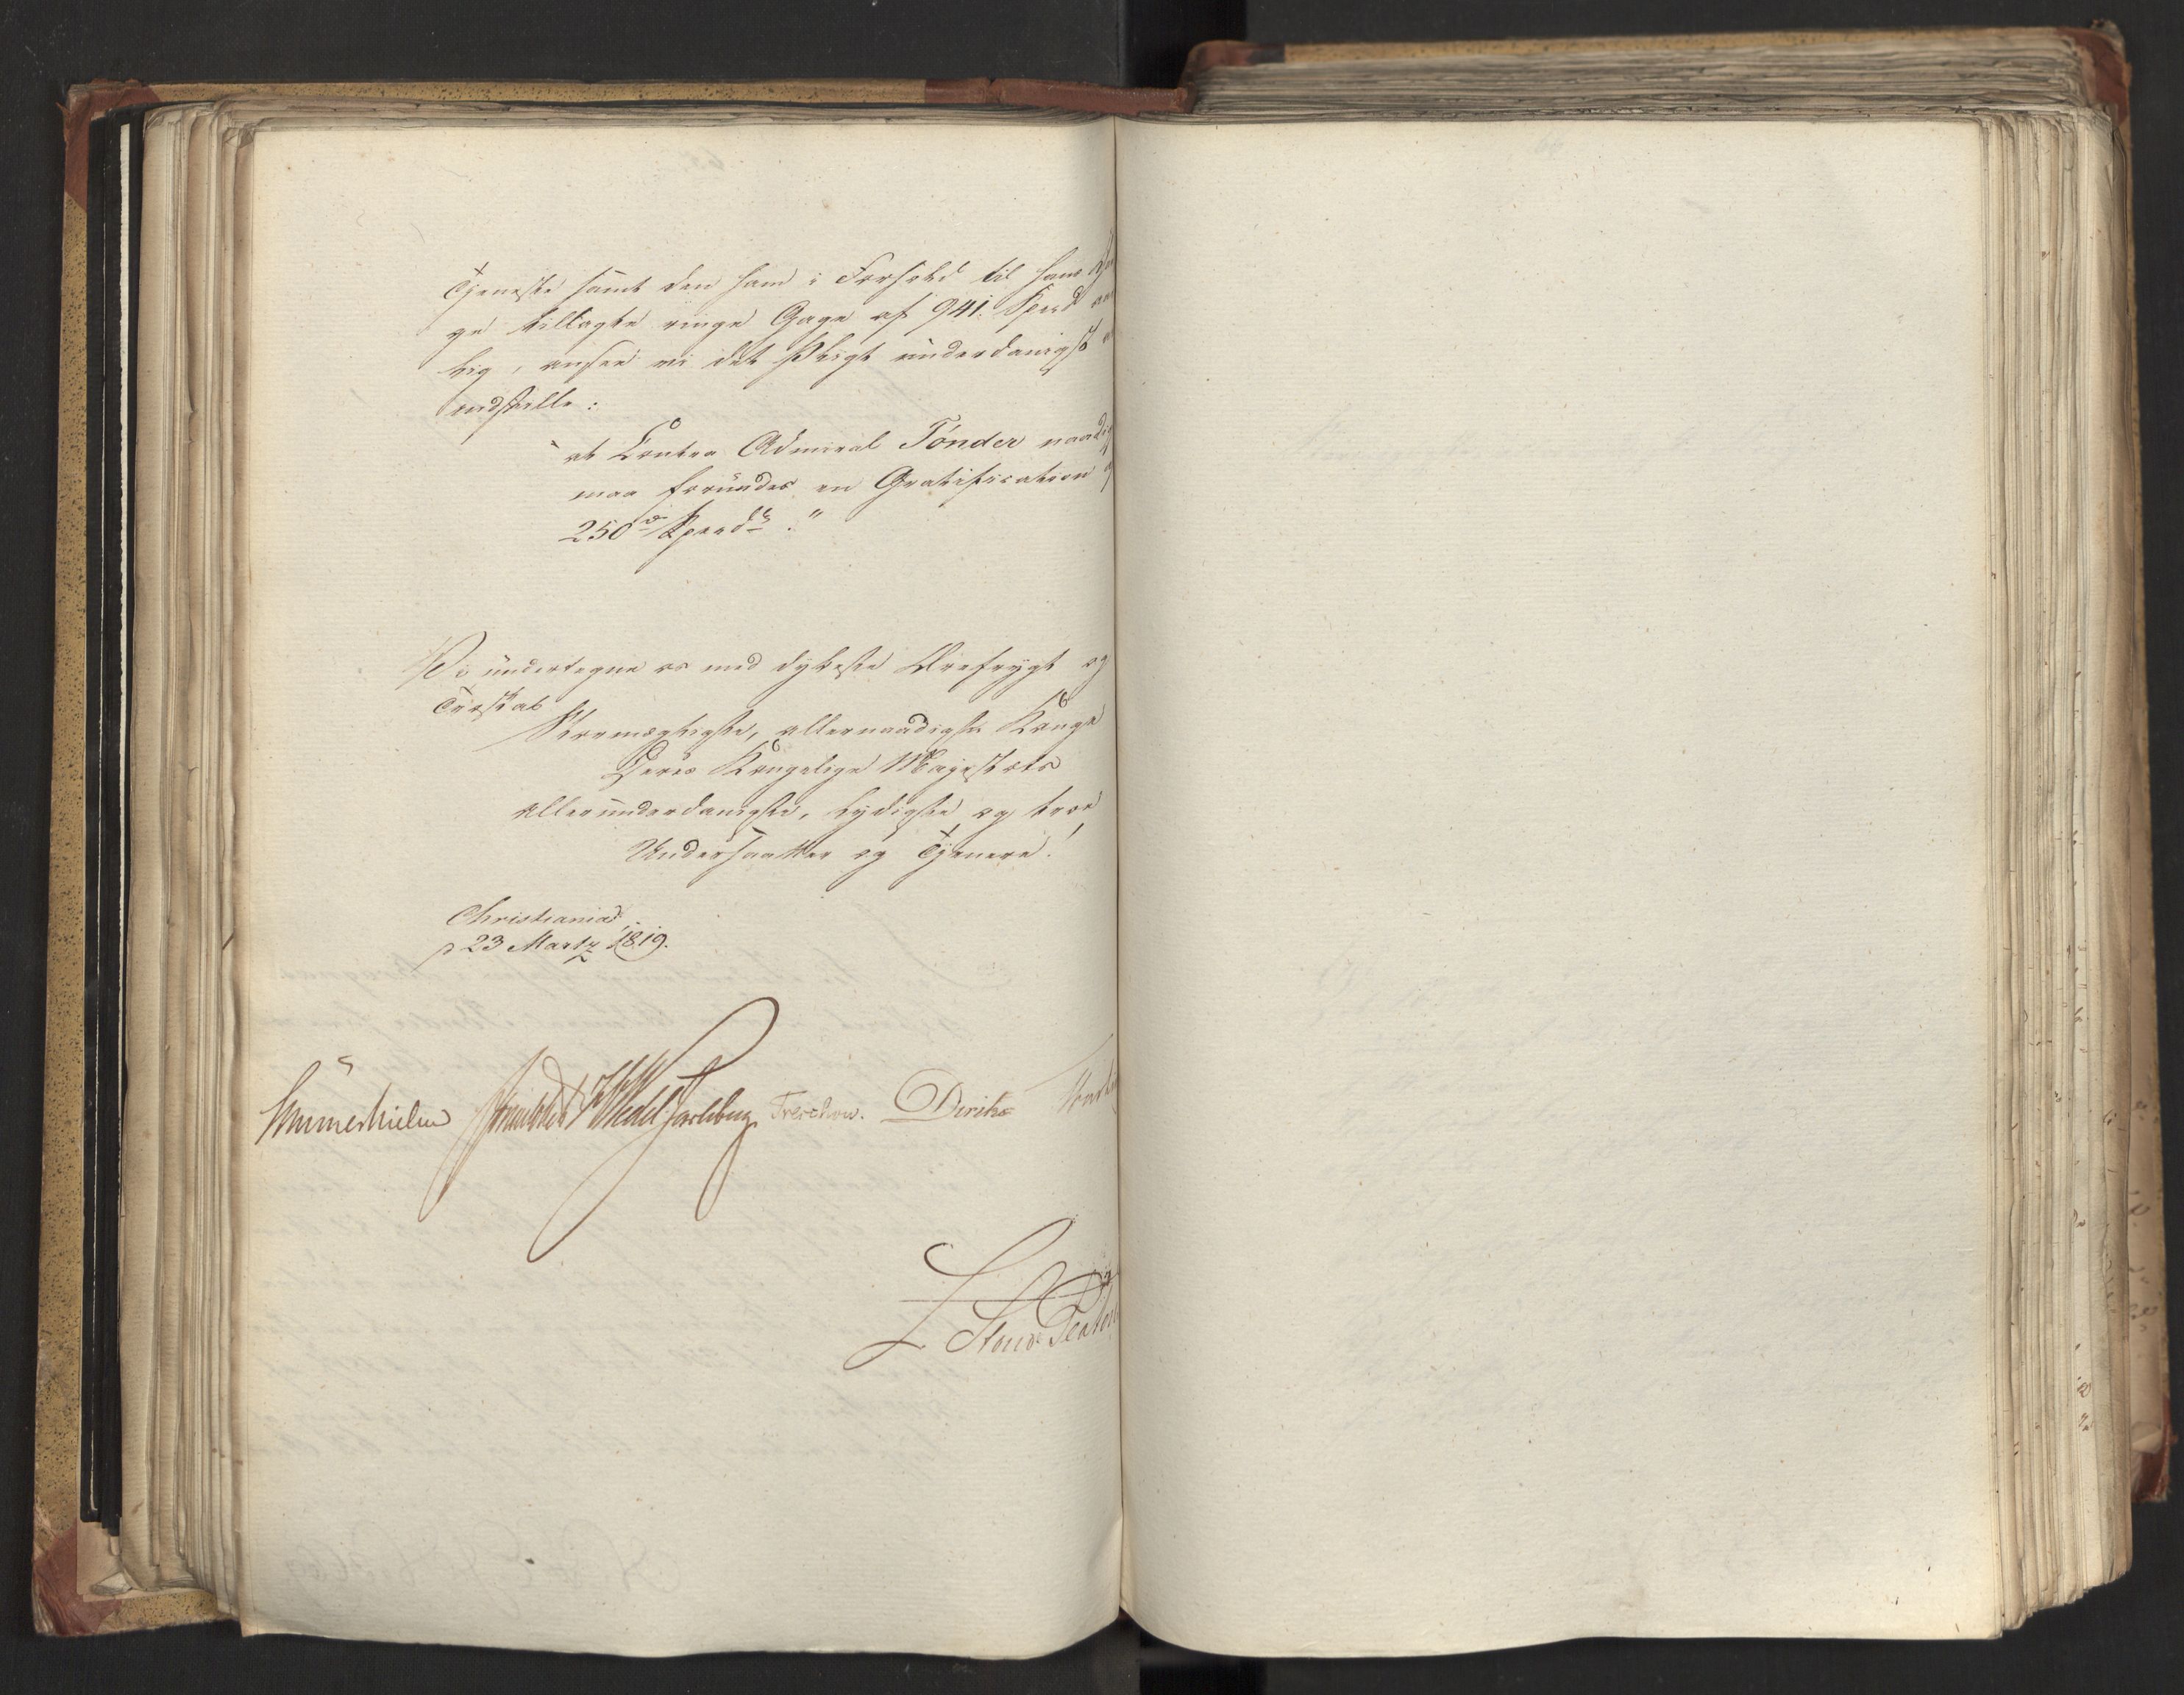 Tjeneste samt den ham i Forhold til hans
ge tillagte ringe Gage af 941. Spd
lig, ansee vi det Pligt underdanigst
indstille:
"at Contra Admiral Tönder naadig
maa forundes en Gratification af
250 Speed."
Vi undertegne os med dybeste Ærefrygt og
Troskab
Stormægtigste, allernaadigste Konge
Deres Kongelige Majestæts
allerunderdanigste, lydigste og troe
Undersaatter og Tjenere!
Christiania
d 23 Martz 1819.
Sommerhielm HWedel Jarlsberg Treschow. Diriks